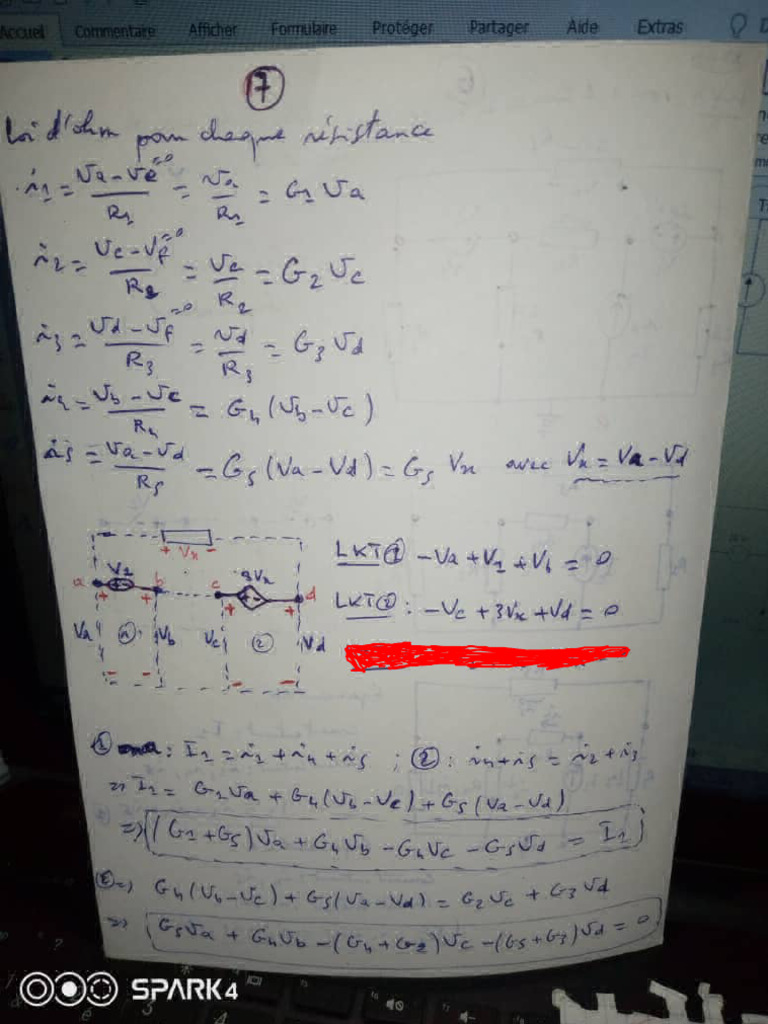 Accueil Commentaire Afficher Formulaire Protéger Partager Aide Extras
7
Loi d'ohm pour chaque résistance
i1 = (Va - Ve=0)/R1 = Va/R1 = G1 Va
i2 = (Vc - Vf=0)/R2 = Vc/R2 = G2 Vc
i3 = (Vd - Vf=0)/R3 = Vd/R3 = G3 Vd
i4 = (Vb - Vc)/R4 = G4 (Vb - Vc)
i5 = (Va - Vd)/R5 = G5 (Va - Vd) = G5 Vx avec Vx = Va - Vd
+ Vx -
a V1 b c 3Vx d
+ + + + - +
Va 1 Vb Vc 2 Vd
- - - -
LKT ① -Va + V1 + Vb = 0
LKT ② : -Vc + 3Vx + Vd = 0
① : I1 = i1 + i4 + i5 ; ② : i4 + i5 = i2 + i3
=> I1 = G1Va + G4(Vb - Vc) + G5(Va - Vd)
=> (G1 + G5)Va + G4Vb - G4Vc - G5Vd = I1
② => G4(Vb - Vc) + G5(Va - Vd) = G2Vc + G3Vd
=> G5Va + G4Vb - (G4 + G2)Vc - (G5 + G3)Vd = 0
SPARK 4